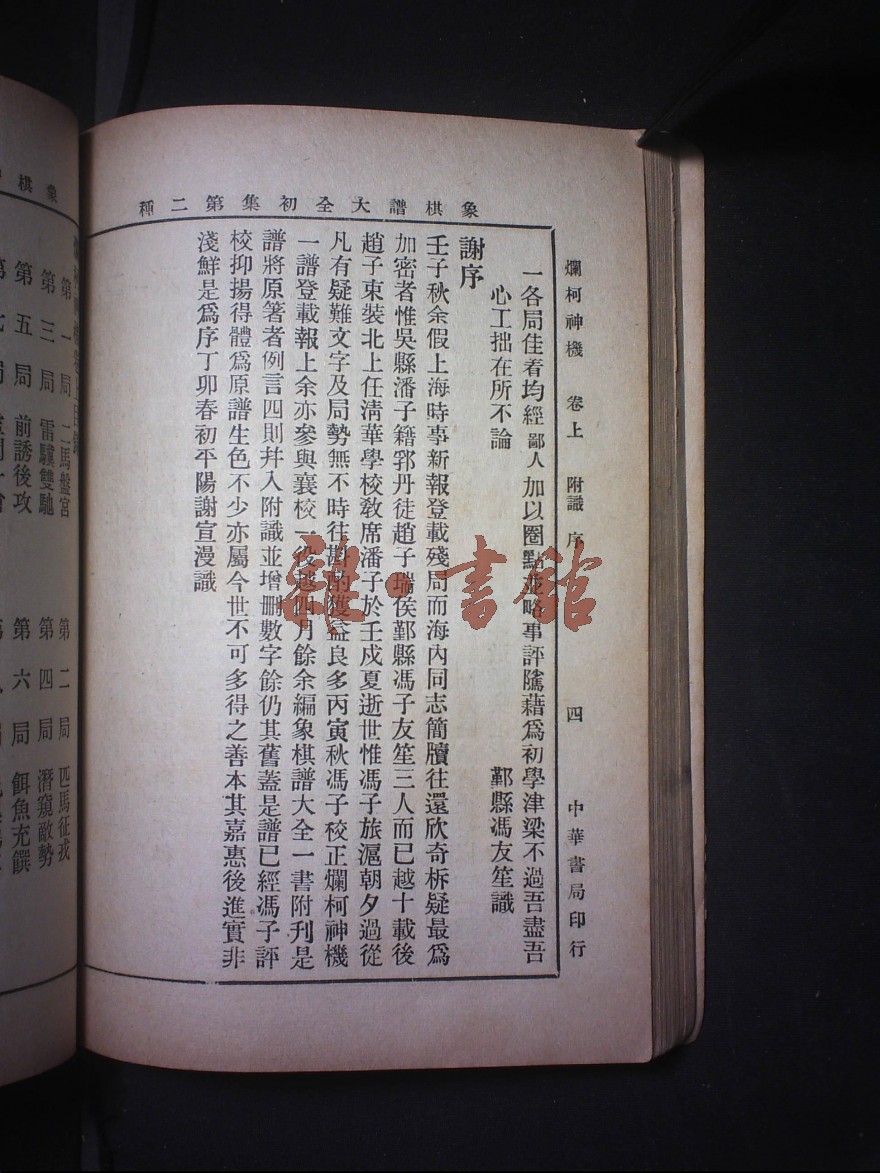 象棋譜大全初集第二種
爛柯神機　卷上　附識　序　四　中華書局印行
一各局佳着均經鄙人加以圈點並略事評隲藉爲初學津梁不過吾盡吾
心工拙在所不論　鄞縣馮友笙識
謝序
壬子秋余假上海時事新報登載殘局而海內同志簡牘往還欣奇柝疑最爲
加密者惟吳縣潘子籍郛丹徒趙子瑞侯鄞縣馮子友笙三人而已越十載後
趙子束裝北上任淸華學校敎席潘子於壬戍夏逝世惟馮子旅滬朝夕過從
凡有疑難文字及局勢無不時往斟酌獲益良多丙寅秋馮子校正爛柯神機
一譜登載報上余亦參與襄校一役越四月餘余編象棋譜大全一書附刊是
譜將原箸者例言四則幷入附識並增删數字餘仍其舊蓋是譜已經馮子評
校抑揚得體爲原譜生色不少亦屬今世不可多得之善本其嘉惠後進實非
淺鮮是爲序丁卯春初平陽謝宣漫識
書館
象棋
第一局　二馬盤宮　第二局　匹馬征戎
第三局　雷驥雙馳　第四局　潛窺敵勢
第五局　前誘後攻　第六局　餌魚充饌